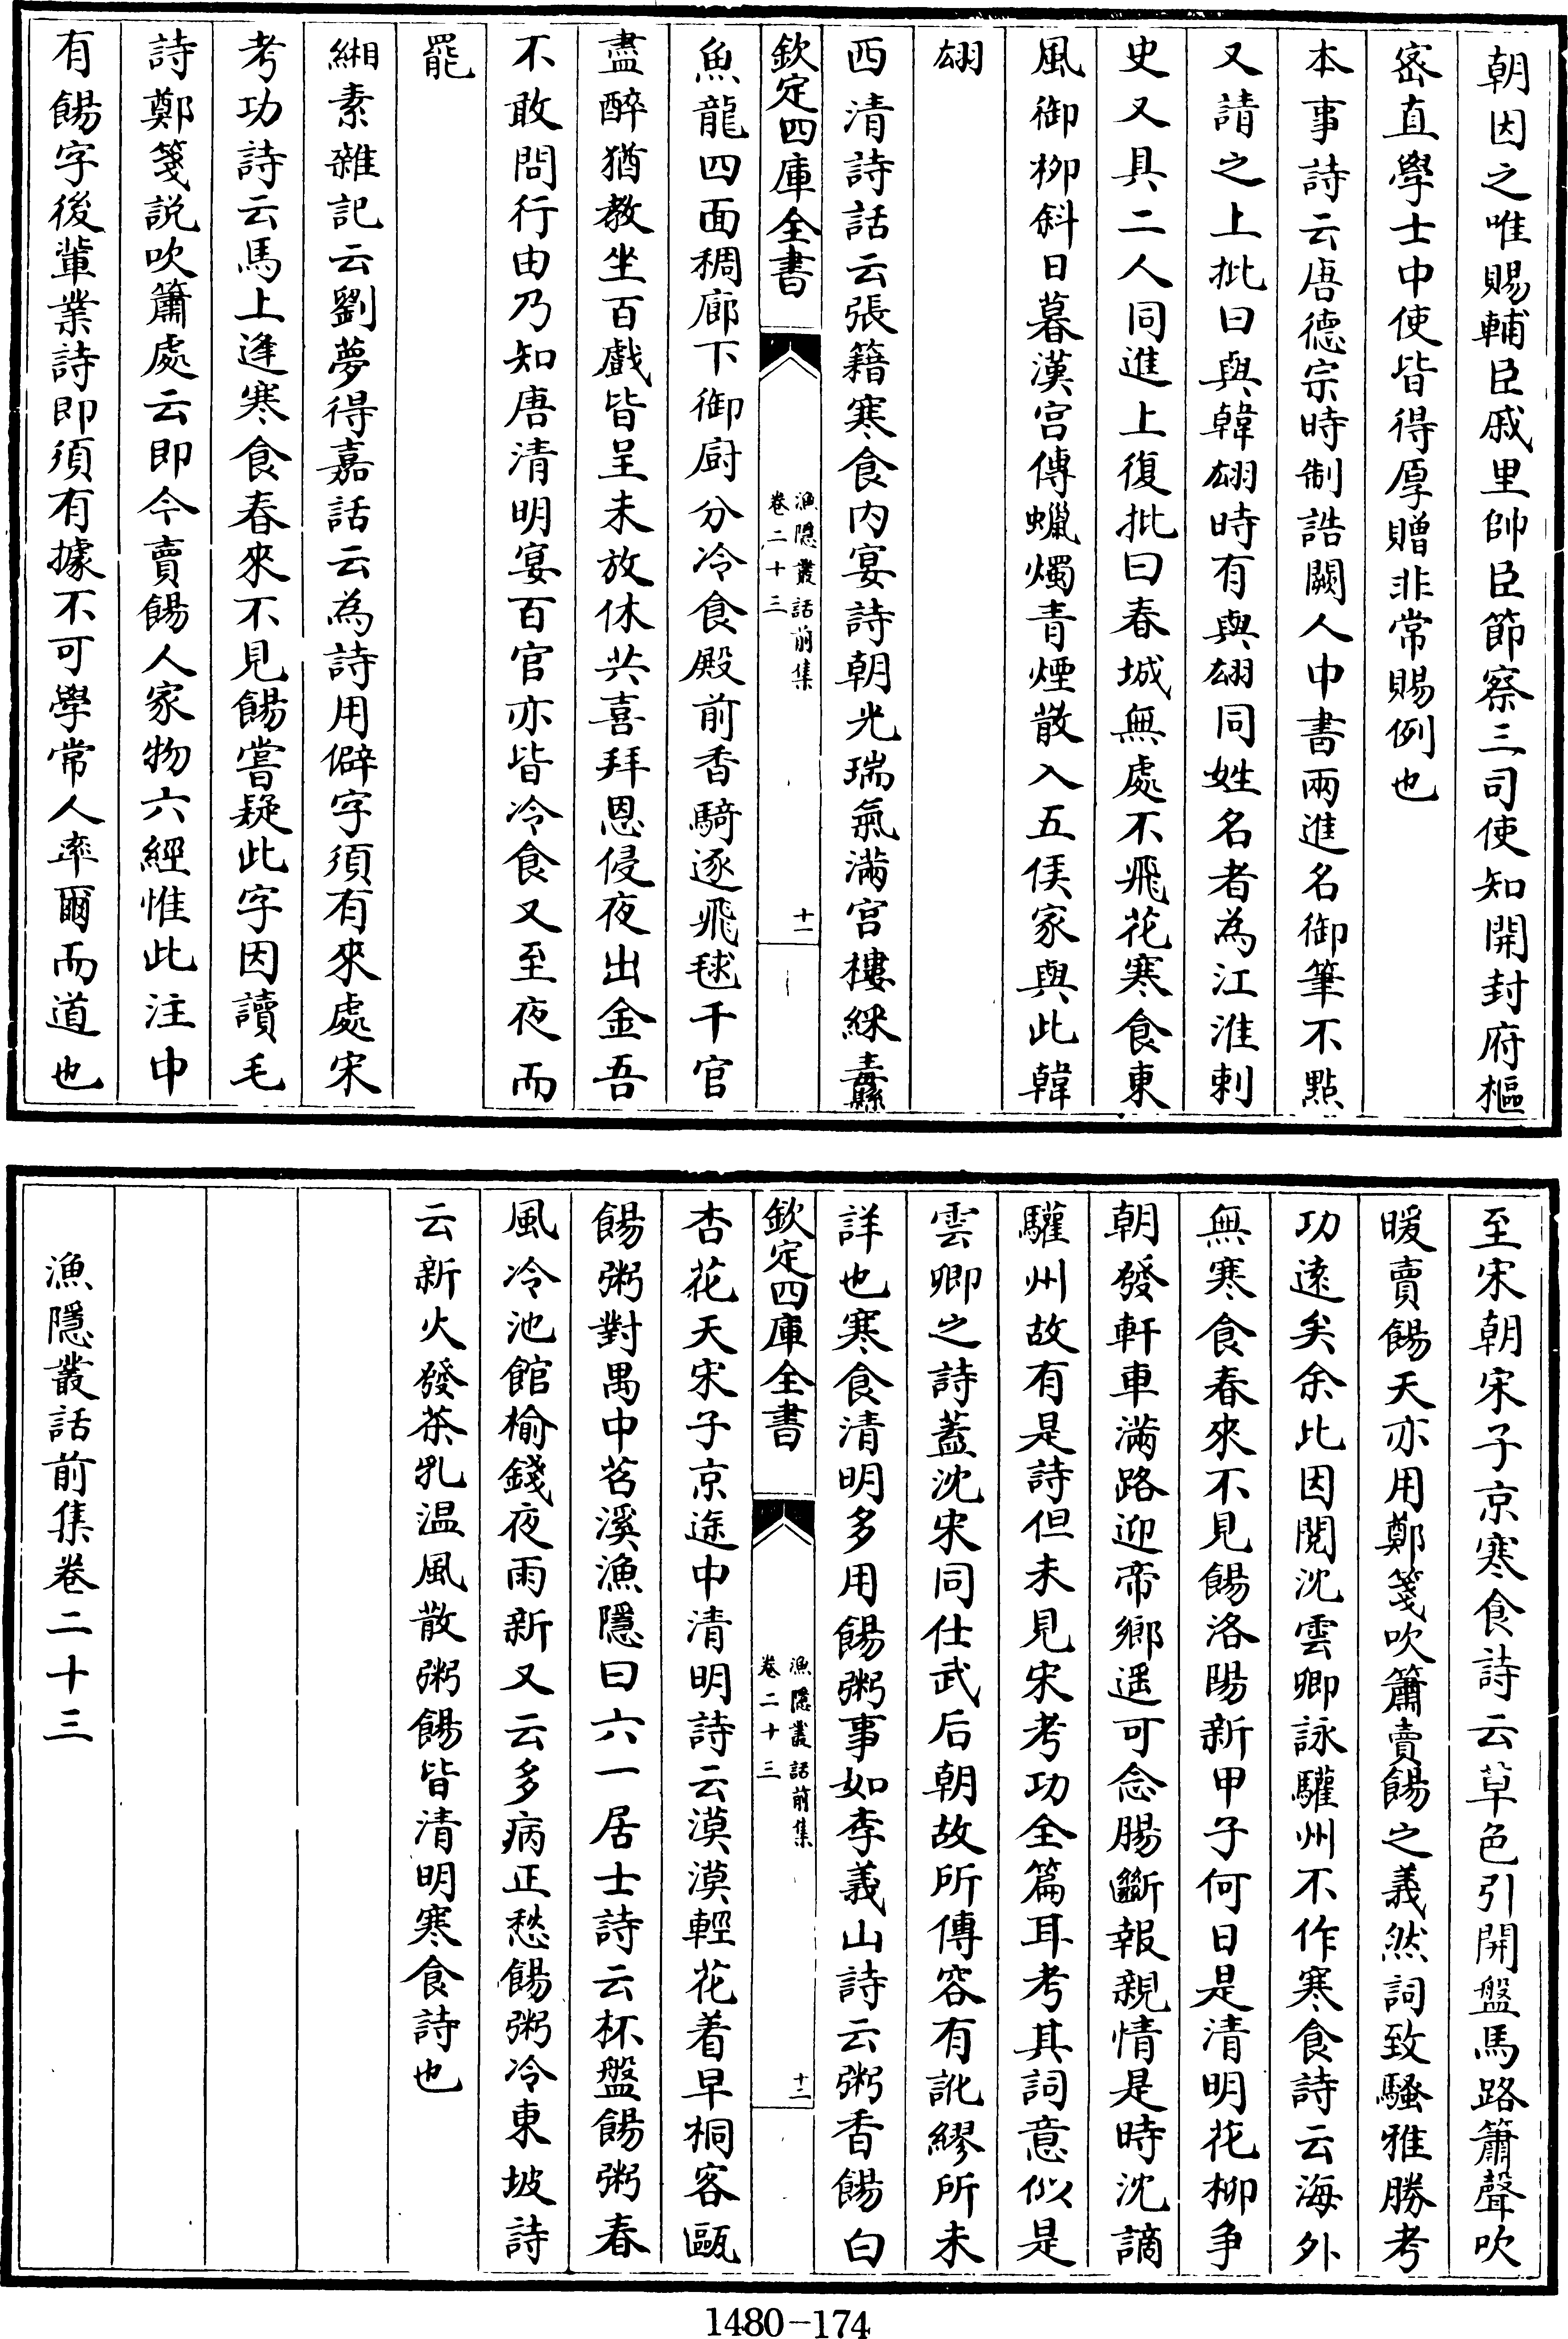 朝因之唯賜輔臣戚里帥臣節察三司使知開封府樞
宻直學士中使皆得厚贈非常賜例也
本事詩云唐德宗時制誥闕人中書兩進名御筆不㸃
又請之上批曰與韓翃時有與翃同姓名者為江淮刺
史又具二人同進上復批曰春城無處不飛花寒食東
風御栁斜日暮漢宮傳蠟燭青煙散入五侯家與此韓
翃
西清詩話云張籍寒食内宴詩朝光瑞氣滿宮樓綵纛
欽定四庫全書
漁隱叢話前集
卷二十三
十一
魚龍四面稠廊下御厨分冷食殿前香騎逐飛毬千官
盡醉猶教坐百戲皆呈未放休共喜拜恩侵夜出金吾
不敢問行由乃知唐清明宴百官亦皆冷食又至夜而
罷
緗素雜記云劉夢得嘉話云為詩用僻字須有來處宋
考功詩云馬上逢寒食春來不見餳嘗疑此字因讀毛
詩鄭箋説吹簫處云即今賣餳人家物六經惟此注中
有餳字後輩業詩即須有據不可學常人率爾而道也
至宋朝宋子京寒食詩云草色引開盤馬路簫聲吹
暖賣餳天亦用鄭箋吹簫賣餳之義然詞致騷雅勝考
功逺矣余比因閲沈雲卿詠驩州不作寒食詩云海外
無寒食春來不見餳洛陽新甲子何日是清明花栁争
朝發軒車滿路迎帝鄉遥可念腸斷報親情是時沈謫
驩州故有是詩但未見宋考功全篇耳考其詞意似是
雲卿之詩蓋沈宋同仕武后朝故所傳容有訛繆所未
詳也寒食清明多用餳粥事如李義山詩云粥香餳白
欽定四庫全書
漁隱叢話前集
卷二十三
十二
杏花天宋子京途中清明詩云漠漠輕花着早桐客甌
餳粥對禺中苕溪漁隱曰六一居士詩云杯盤餳粥春
風冷池館榆錢夜雨新又云多病正愁餳粥冷東坡詩
云新火發茶乳温風散粥餳皆清明寒食詩也
漁隱叢話前集卷二十三
1480-174